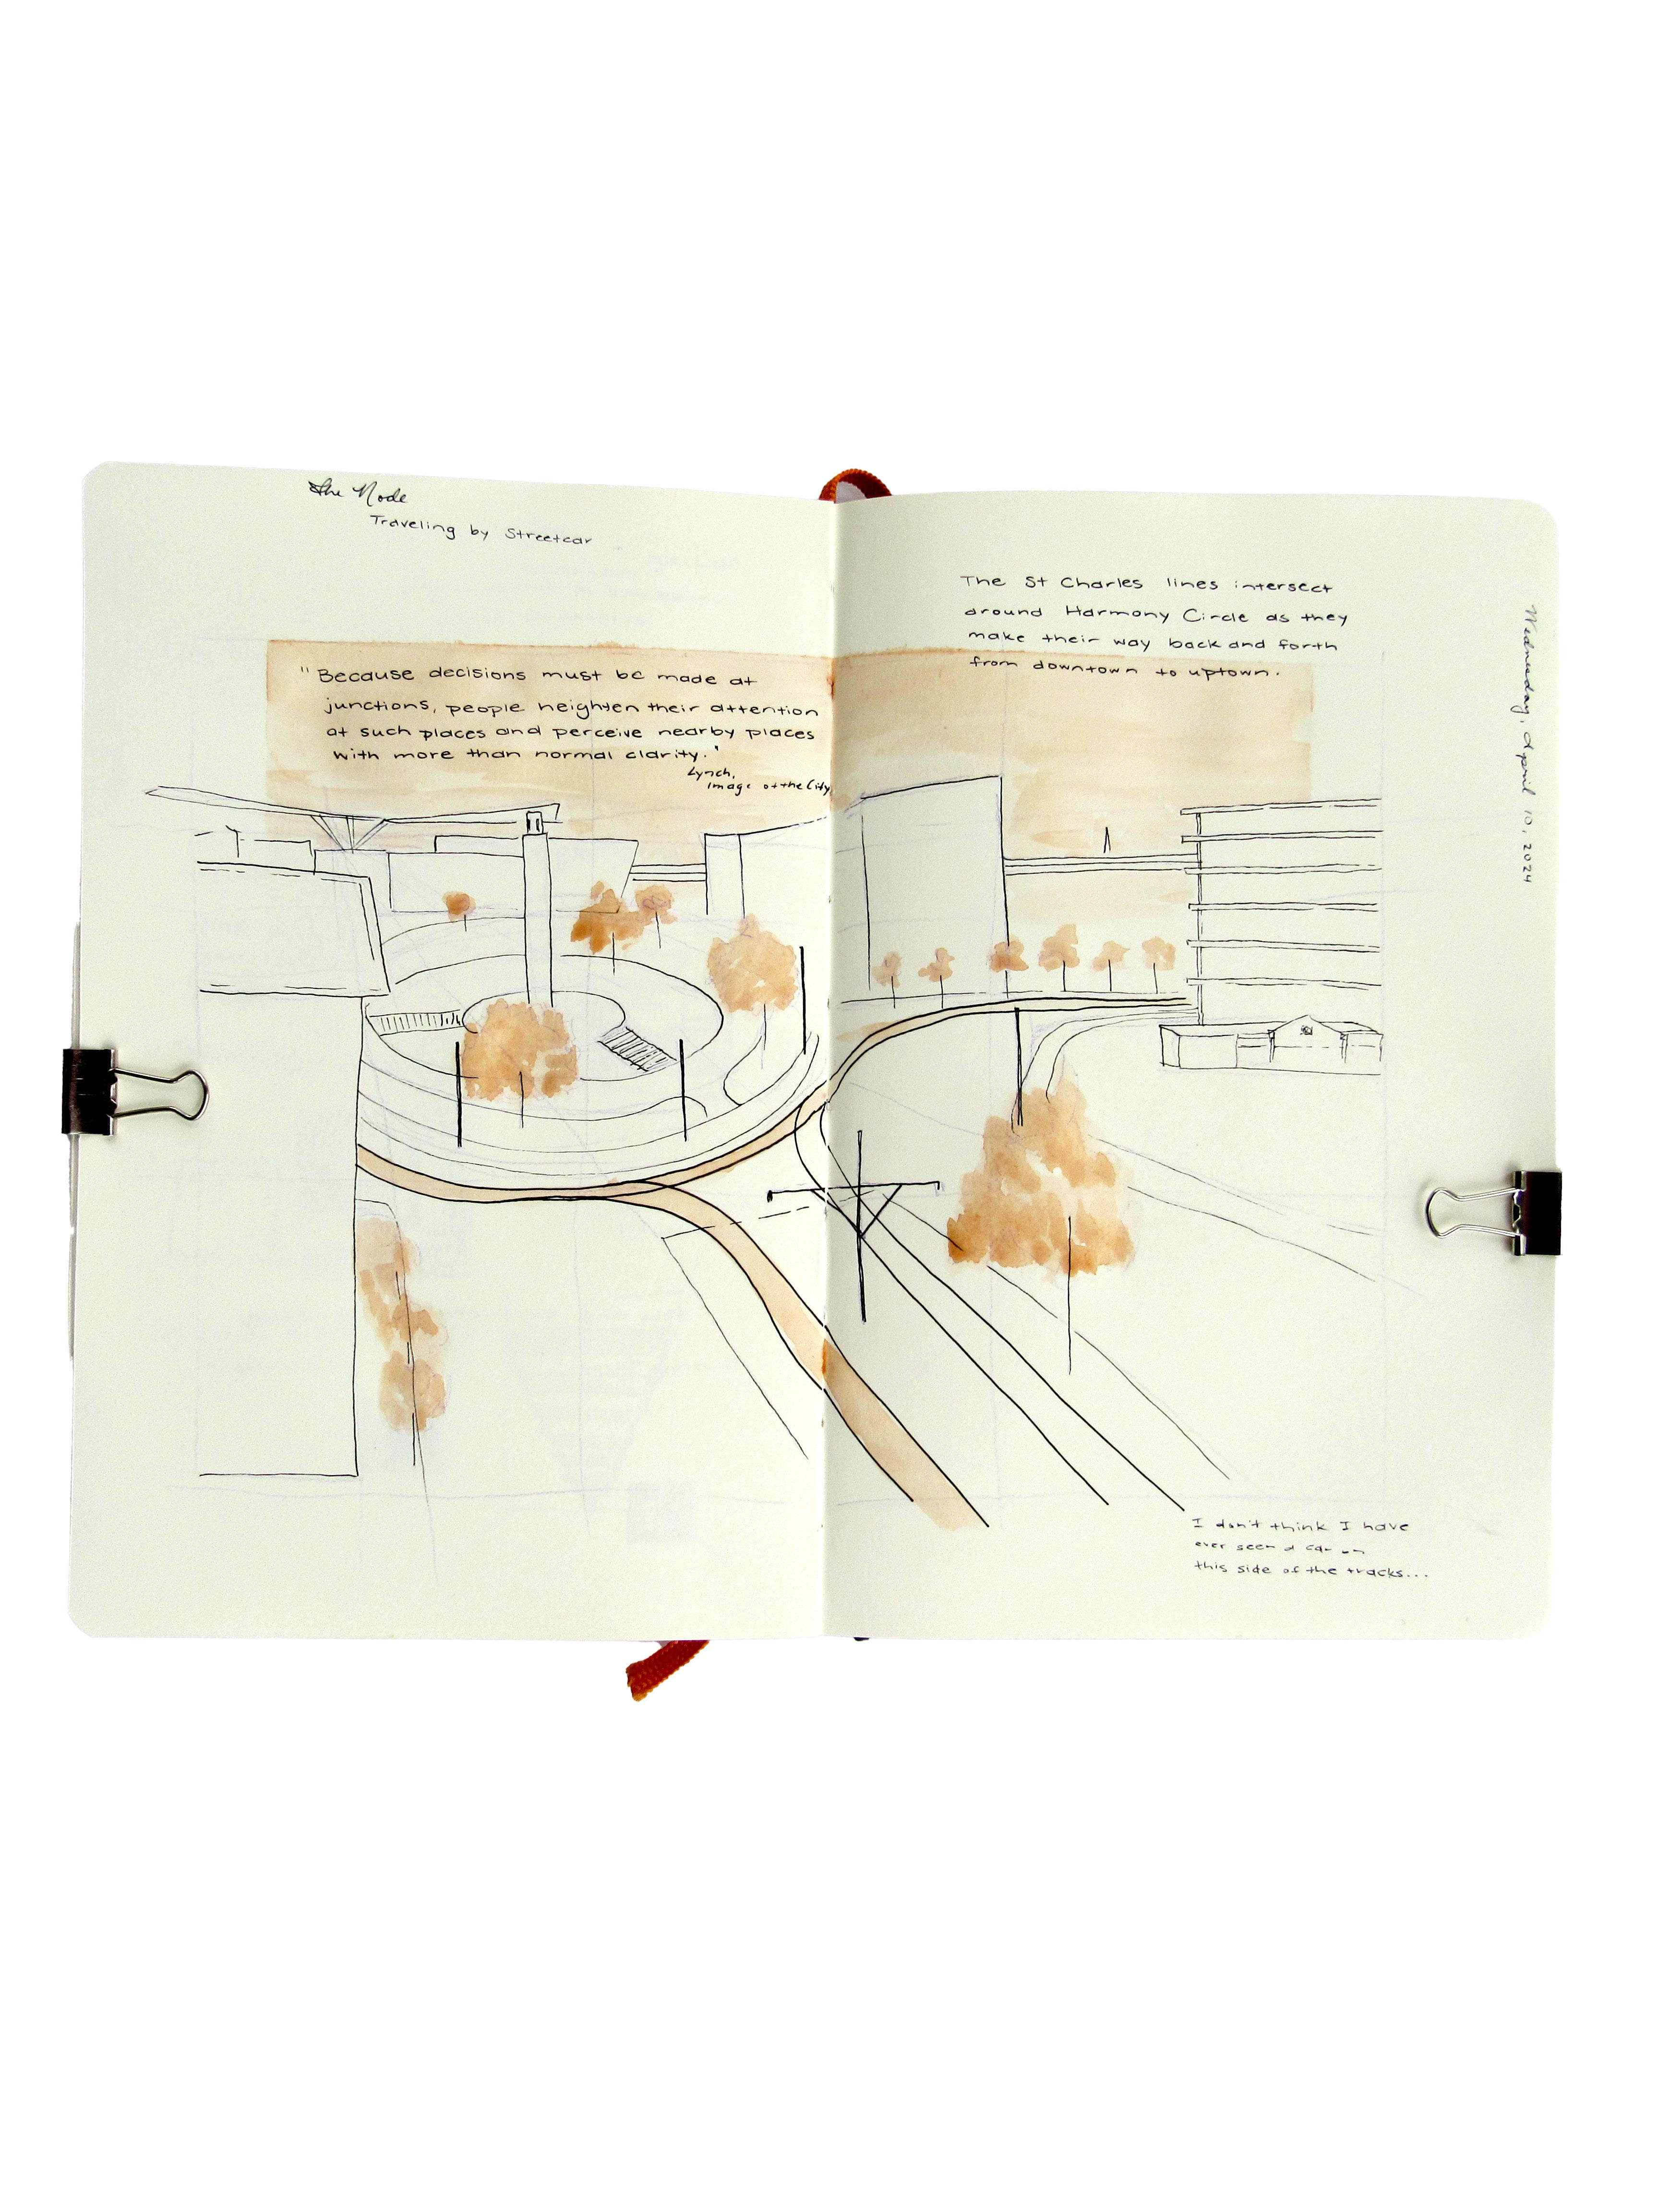 The Node
Traveling by Streetcar
"Because decisions must be made at
junctions, people heighten their attention
at such places and perceive nearby places
with more than normal clarity."
Lynch,
Image of the City
The St Charles lines intersect
around Harmony Circle as they
make their way back and forth
from downtown to uptown.
Wednesday, April 10, 2024
I don't think I have
ever seen a car on
this side of the tracks...